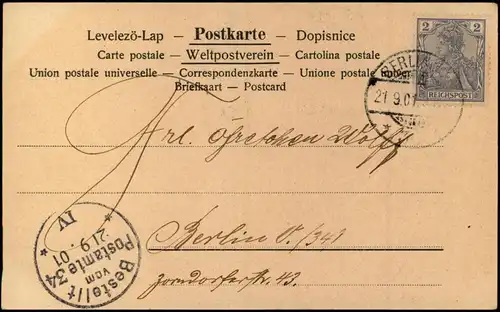 Levelezö-Lap — Postkarte — Dopisnice
Carte postale — Weltpostverein — Cartolina postale
Union postale universelle — Correspondenzkarte — Unione postale
Briefkaart — Postcard
2 2
REICHSPOST
BERLIN
21 9.01
Frl. Gretchen Wolff
Berlin O. /34/
Zorndorferstr. 43.
Bestellt
vom
Postamte 34
21.9. 01
IV